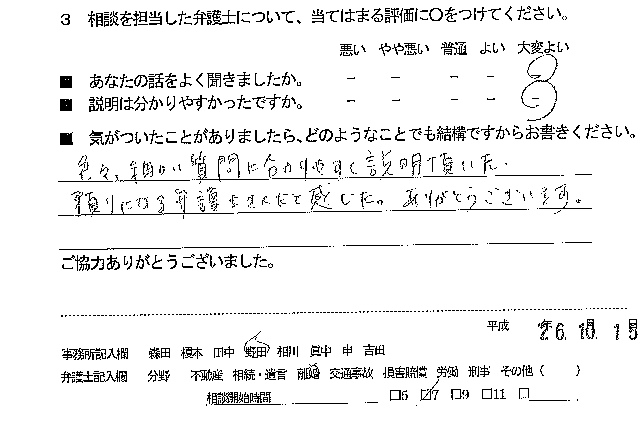 3 相談を担当した弁護士について、当てはまる評価に○をつけてください。
悪い やや悪い 普通 よい 大変よい
■ あなたの話をよく聞きましたか。 - - - - -
■ 説明は分かりやすかったですか。 - - - - -
■ 気がついたことがありましたら、どのようなことでも結構ですからお書きください。
色々、細かい質問に分かりやすく説明頂いた。
頼りになる弁護士さんだと感じた。ありがとうございます。
ご協力ありがとうございました。
平成 年 月 日
26.10.15
事務所記入欄 森田 榎本 田中 野田 相川 眞中 申 吉田
弁護士記入欄 分野 不動産 相続・遺言 離婚 交通事故 損害賠償 労働 刑事 その他（ ）
相談開始時間 □5 □7 □9 □11 □